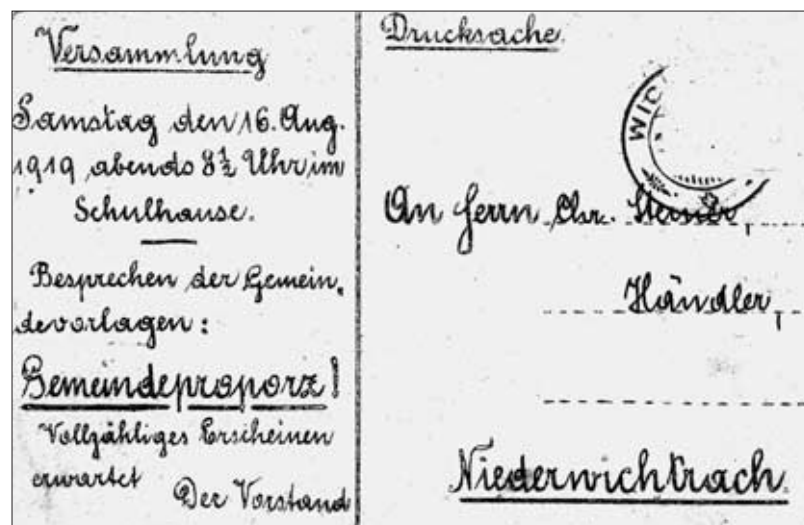 Versammlung
Samstag den 16. Aug.
1919, abends 8½ Uhr im
Schulhause.
Besprechen der Gemein-
devorlagen:
Gemeindeproporz!
Vollzähliges Erscheinen
erwartet
Der Vorstand
Drucksache.
WIC
An Herrn Chr.
Händler,
Niederwichtrach.